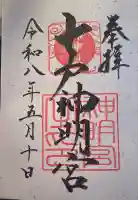 奉拝
七戸神明宮
令和八年五月十日